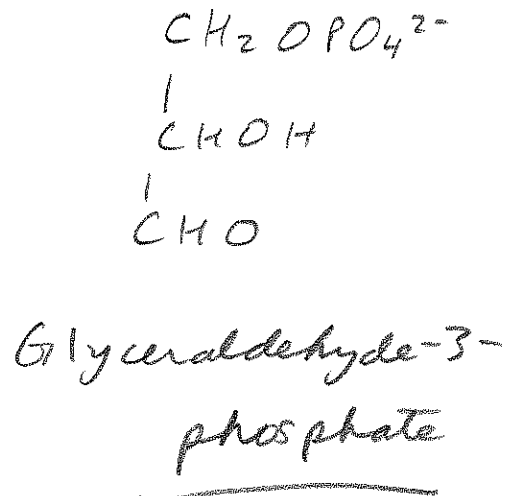 CH₂OPO₄²⁻
|
CHOH
|
CHO
Glyceraldehyde-3-
phosphate